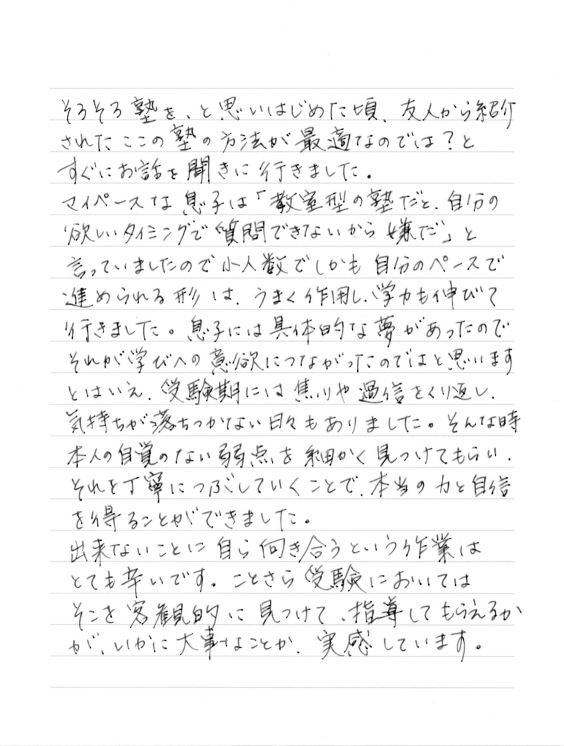 そろそろ塾を、と思いはじめた頃、友人から紹介
されたここの塾の方法が最適なのでは?と
すぐにお話を聞きに行きました。
マイペースな息子は「教室型の塾だと、自分の
欲しいタイミングで質問できないから嫌だ」と
言っていましたので小人数でしかも自分のペースで
進められる形は、うまく作用し、学力も伸びて
行きました。息子には具体的な夢があったので
それが学びへの意欲につながったのではと思います
とはいえ、受験期には焦りや過信をくり返し、
気持ちが落ちつかない日々もありました。そんな時
本人の自覚のない弱点を細かく見つけてもらい、
それを丁寧につぶしていくことで、本当の力と自信
を得ることができました。
出来ないことに自ら向き合うという作業は
とても辛いです。ことさら受験においては
そこを客観的に見つけて、指導してもらえるか
が、いかに大事なことか、実感しています。